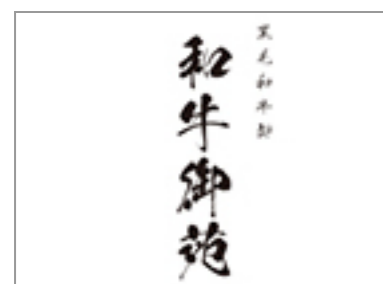 黒毛和牛卸
和牛御苑